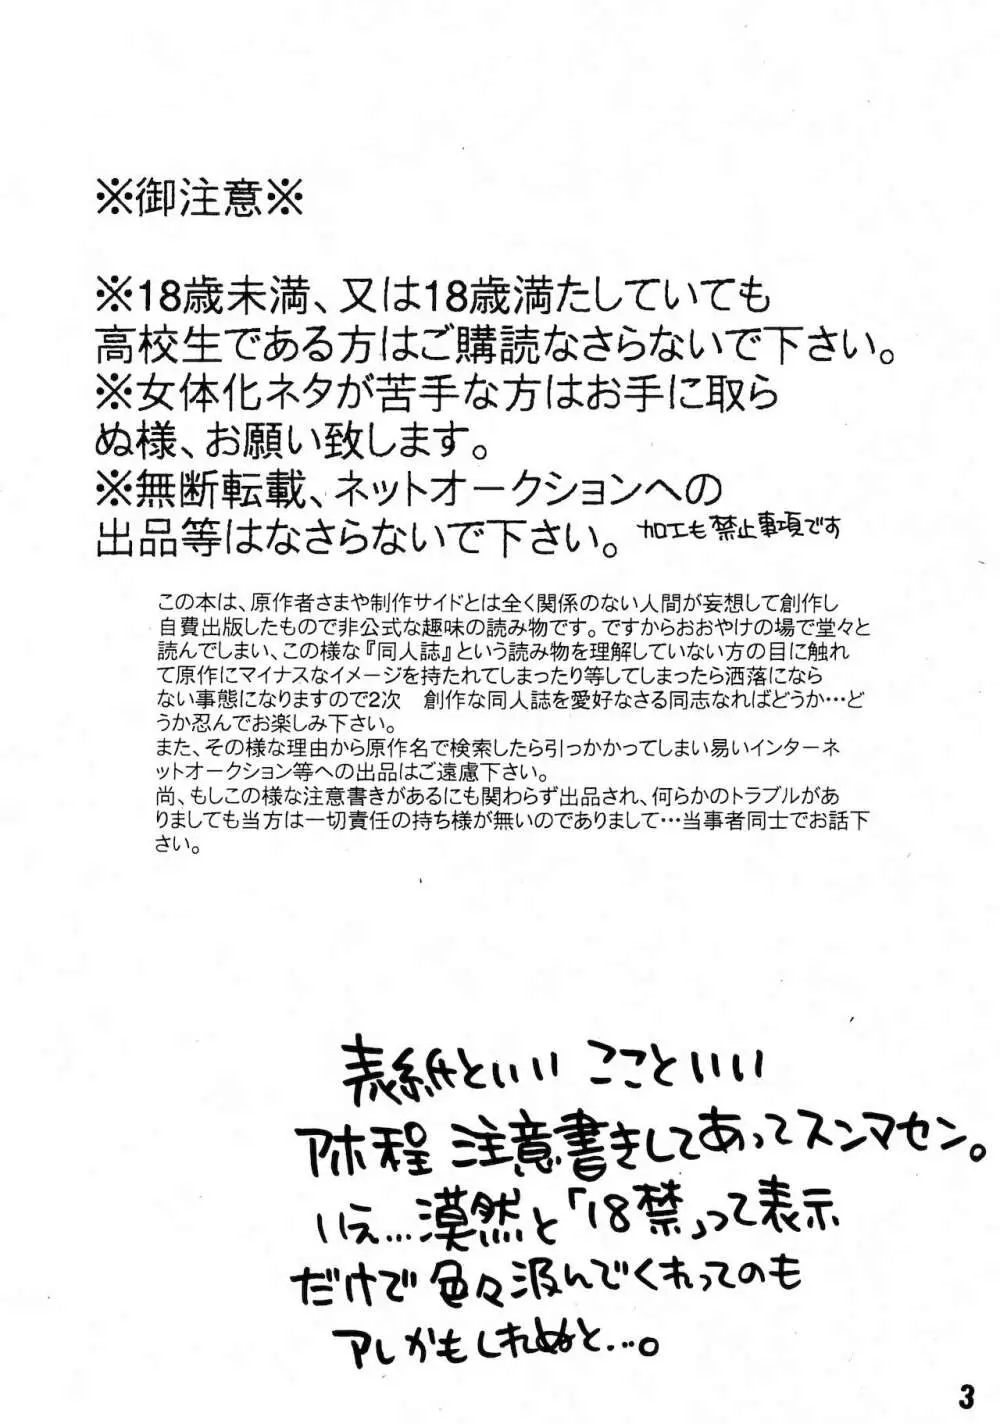 ※御注意※
※18歳未満、又は18歳満たしていても
高校生である方はご購読なさらないで下さい。
※女体化ネタが苦手な方はお手に取ら
ぬ様、お願い致します。
※無断転載、ネットオークションへの
出品等はなさらないで下さい。 加工も禁止事項です
この本は、原作者さまや制作サイドとは全く関係のない人間が妄想して創作し
自費出版したもので非公式な趣味の読み物です。ですからおおやけの場で堂々と
読んでしまい、この様な『同人誌』という読み物を理解していない方の目に触れ
て原作にマイナスなイメージを持たれてしまったり等してしまったら洒落になら
ない事態になりますので2次　創作な同人誌を愛好なさる同志なればどうか…ど
うか忍んでお楽しみ下さい。
また、その様な理由から原作名で検索したら引っかかってしまい易いインターネ
ットオークション等への出品はご遠慮下さい。
尚、もしこの様な注意書きがあるにも関わらず出品され、何らかのトラブルがあ
りましても当方は一切責任の持ち様が無いのでありまして…当事者同士でお話下
さい。
表紙といい ここといい
アホ程 注意書きしてあってスンマセン。
いえ…漠然と「18禁」って表示
だけで 色々汲んでくれってのも
アレかもしれぬと…。
3